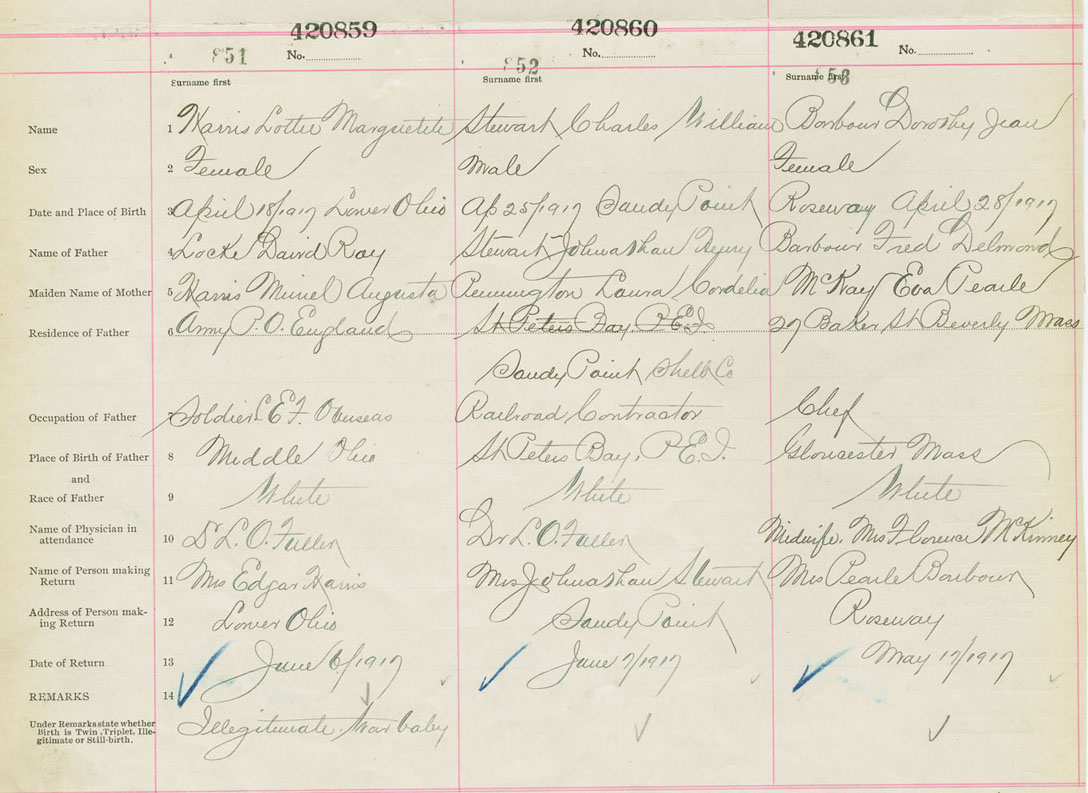 420859 420860 420861
851 No. 852 No. 853 No.
1 Surname first Surname first Surname first
Name 1 Harris Lottie Marguetite Stewart Charles William Barbour Dorothy Jean
Sex 2 Female Male Female
Date and Place of Birth 3 April 18/1917 Lower Ohio Ap 25/1917 Sandy Point Roseway April 28/1917
Name of Father 4 Locke David Ray Stewart Johnathan Henry Barbour Fred Delmond
Maiden Name of Mother 5 Harris Muriel Augusta Pennington Laura Cordelia McKay Eva Pearle
Residence of Father 6 Army P.O. England St Peters Bay, P.E.I. 27 Baker St Beverly Mass
Sandy Point Shelb Co
Occupation of Father 7 Soldier C E F. Overseas Railroad Contractor Chef
Place of Birth of Father 8 Middle Ohio St Peters Bay, P.E.I. Gloucester Mass
and
Race of Father 9 White White White
Name of Physician in
attendance 10 Dr L. O. Fuller Dr L. O. Fuller Midwife, Mrs Florence McKinney
Name of Person making
Return 11 Mrs Edgar Harris Mrs Johnathan Stewart Mrs Pearle Barbour
Address of Person mak-
ing Return 12 Lower Ohio Sandy Point Roseway
Date of Return 13 June 6/1917 June 7/1917 May 17/1917
REMARKS 14
Under Remarks state whether
Birth is Twin, Triplet, Ille-
gitimate or Still-birth. Illegitimate. War baby